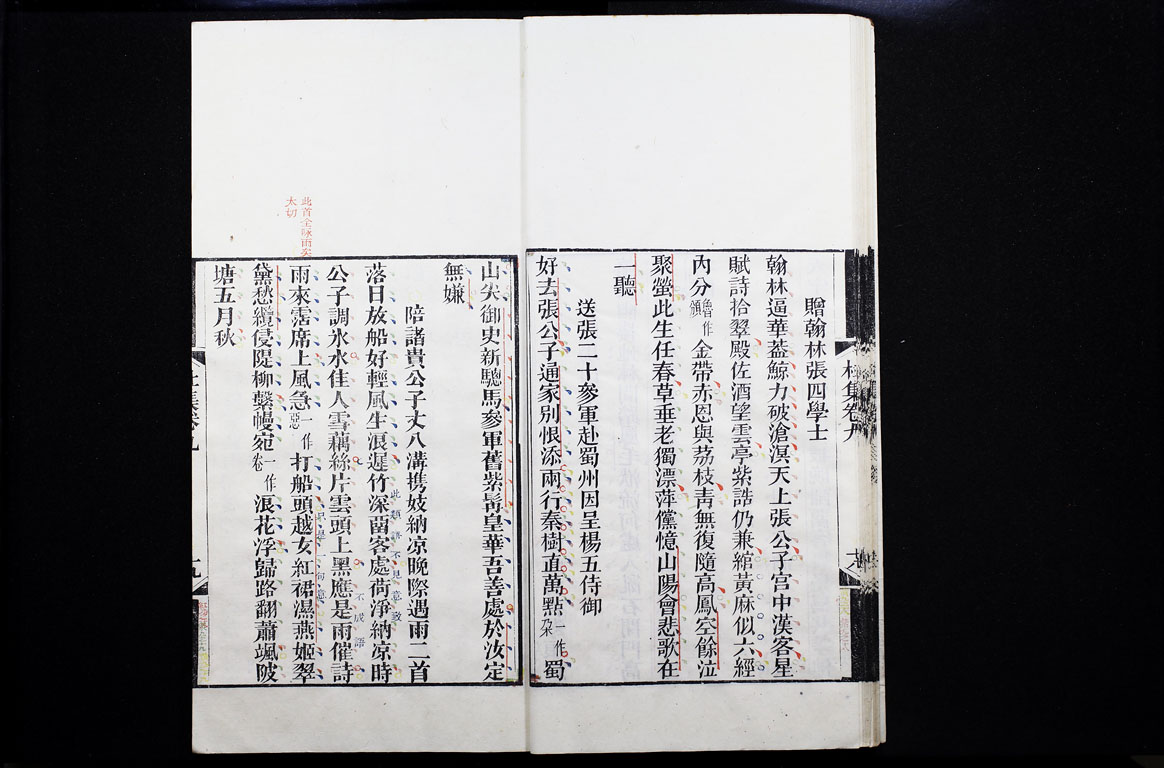 贈翰林張四學士
翰林逼華葢鯨力破滄溟天上張公子宫中漢客星
賦詩拾翠殿佐酒望雲亭紫誥仍兼綰黃麻似六經
內分魯作頒金帶赤恩與荔枝靑無復隨高鳳空餘泣
聚螢此生任春草垂老獨漂萍儻憶山陽會悲歌在
一聽
送張二十參軍赴蜀州因呈楊五侍御
好去張公子通家別恨添兩行秦樹直萬點一作朶蜀
山尖御史新驄馬參軍舊紫髯皇華吾善處於汝定
無嫌
陪諸貴公子丈八溝携妓納凉晚際遇雨二首
落日放船好輕風生浪遲竹深畱客處荷淨納凉時
此類語不見意致
公子調氷水佳人雪藕絲片雲頭上黑應是雨催詩
不成語
雨來霑席上風急一作惡打船頭越女紅裙濕燕姬翠
黛愁纜侵隄柳繫幔宛一作卷浪花浮歸路翻蕭颯陂
塘五月秋
此首全咏雨矣
太切
杜集卷九
十九